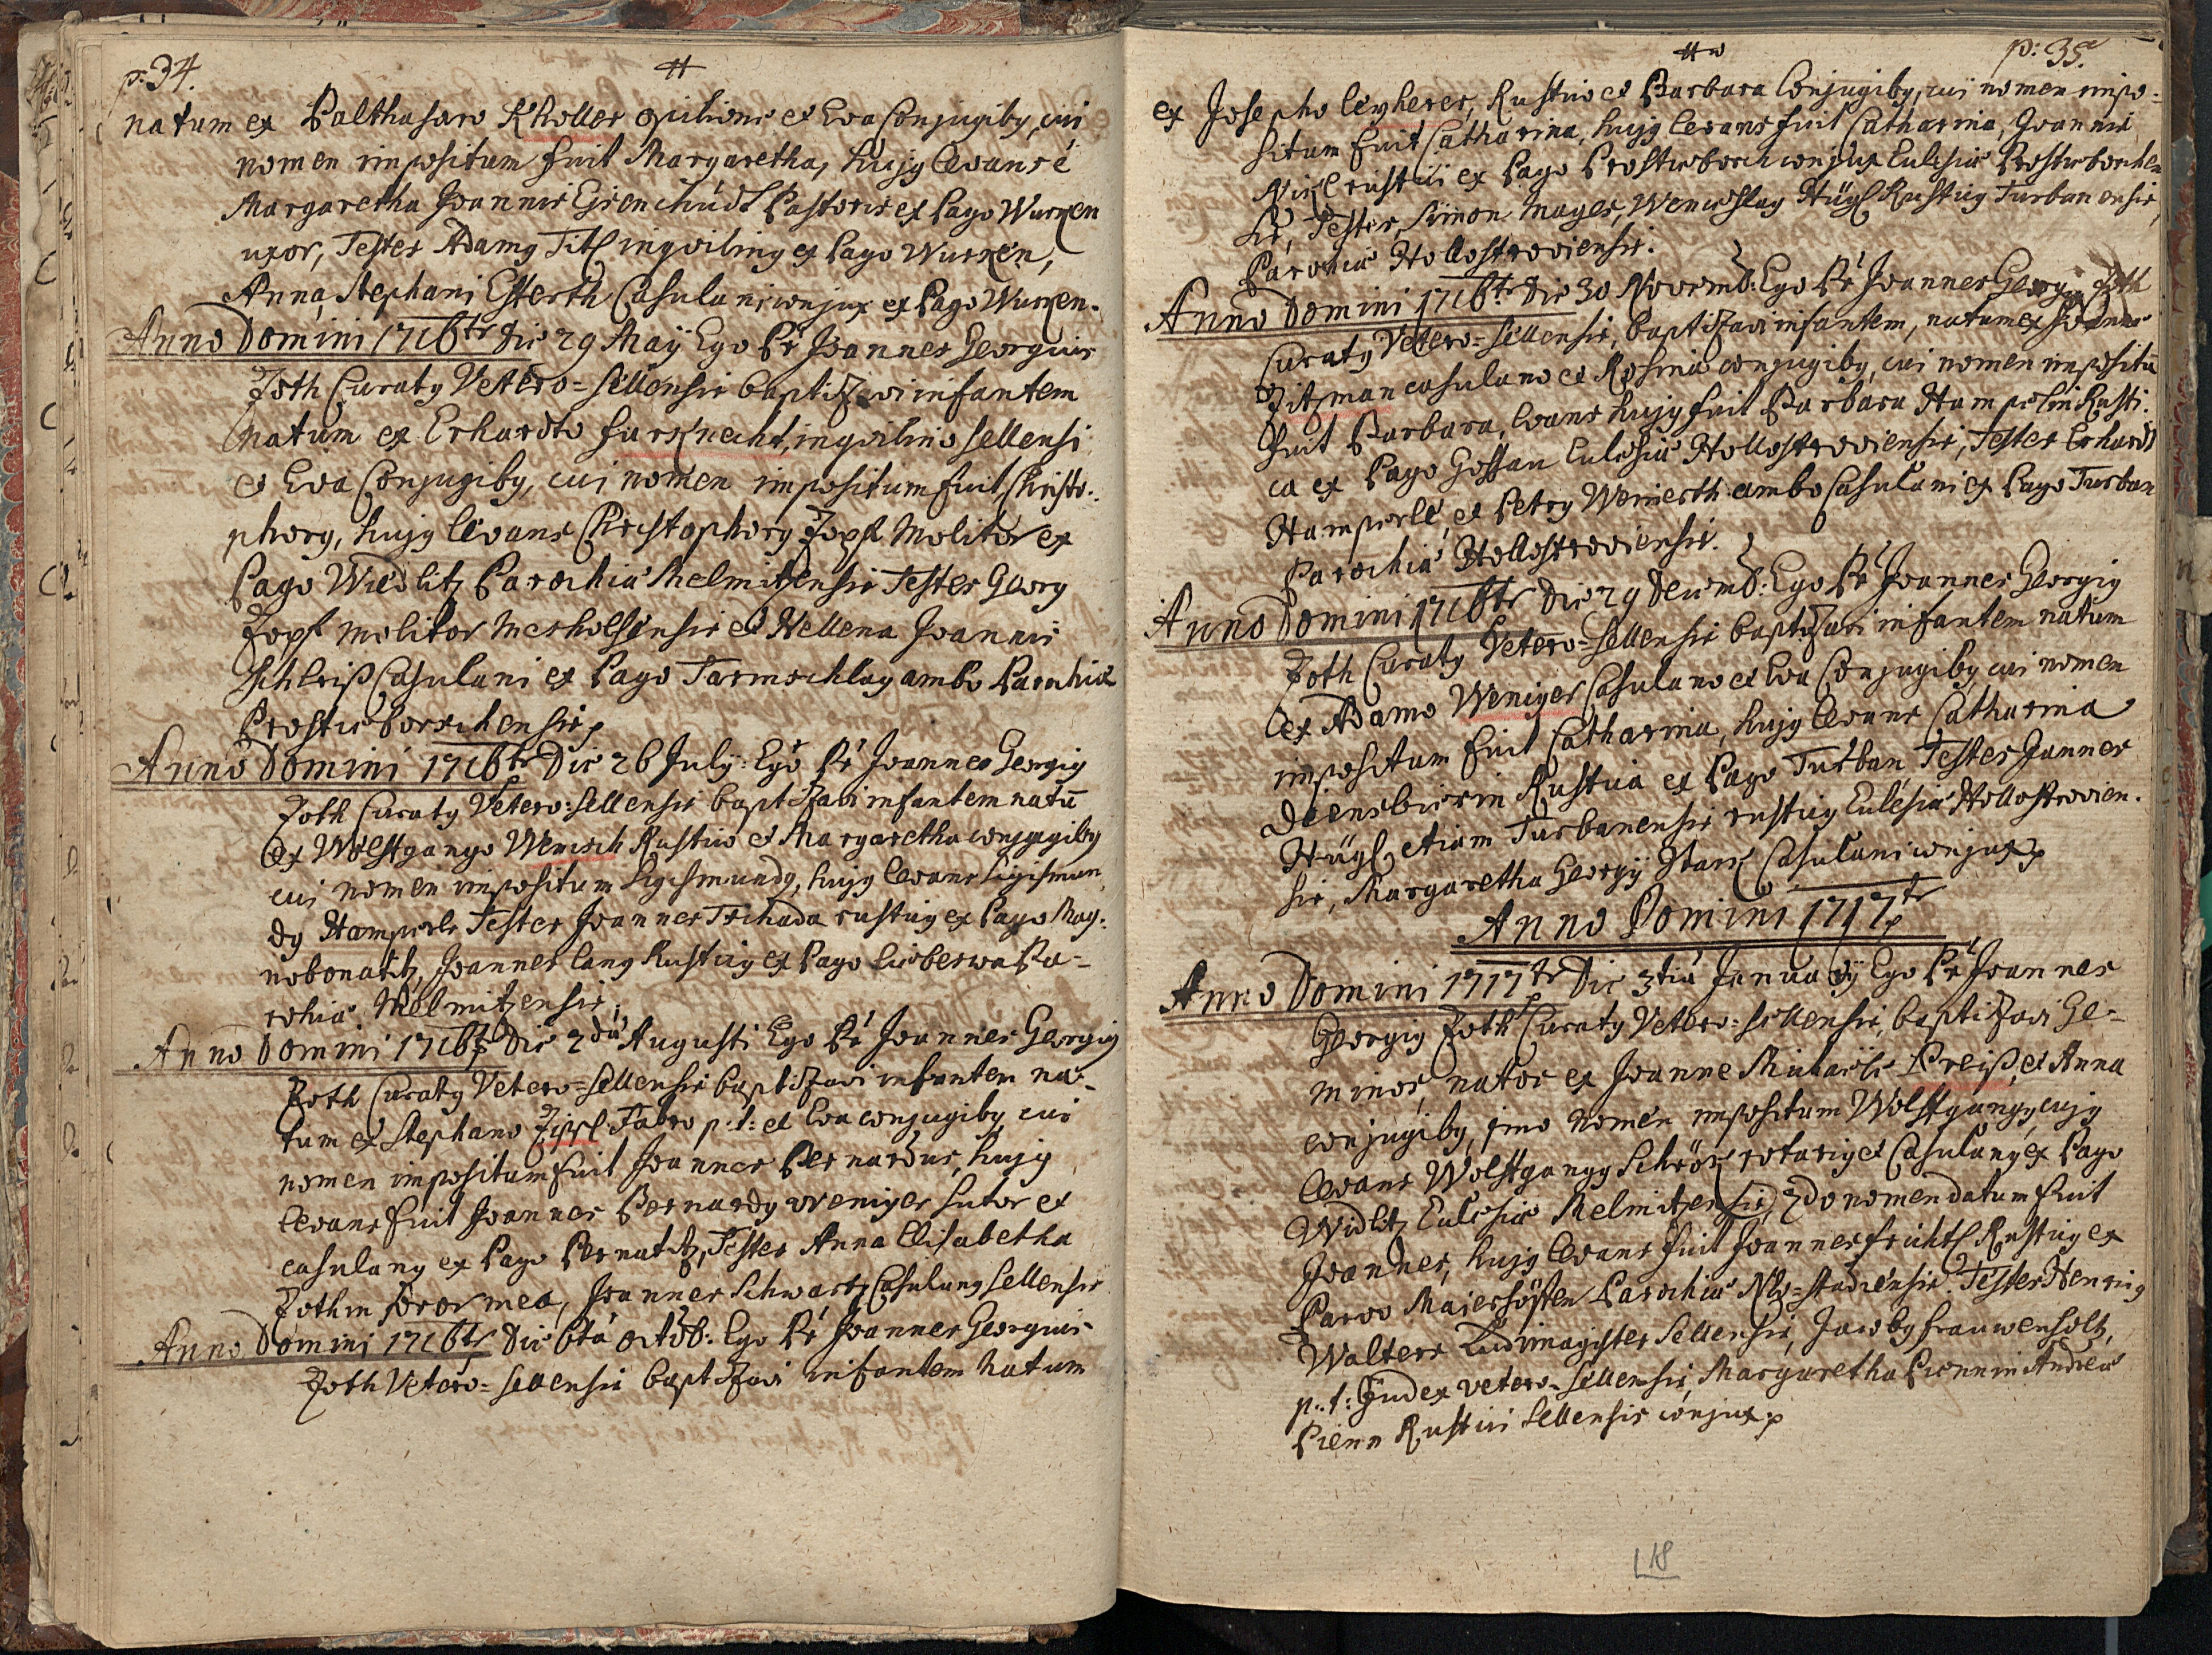 p. 34.
natum ex Balthasaro Kholler opilione et Eva Conjugibg, cui
nomen impositum fuit Margaretha, hujg levans é
Margaretha Joannis Pastoris ex Pago Wurzen
uxor, Testes Adamg Titl inqviling ex Pago Wurzen,
Anna Stephani Casulani conjux ex Pago Wurzen.
Anno Domini 1716te Die 29 Maÿ Ego Pr Joannes Georgius
Zoth Curatg Vetero=Sellensis baptizavi infantem
natum ex Erhardto furknecht, inqvilino Sellensi
et Eva Conjugibg, cui nomen impositum fuit Christo-
phorg, hujg levans Christophorg Zopf Molitor ex
Pago Wiedlitz Parochia Melmitzensis Testes Georg
Zopf Molitor et Hellena Joannis
Schleiß Casulani ex Pago Tarmschlag ambo Parochia
Prostiborschensis
Anno Domini 1716te Die 26 Julÿ: Ego Pr Joannes Georgig
Zoth Curatg Vetero=Sellensis baptizavi infantem natū
ex Wolffgango Wenisch Rustico et Margaretha conjugibg
cui nomen impositum Sigismundg, hujg levans Sigismun-
dg Hamperle Testes Joannes Tschada rusticg ex Pago
Joannes Lang Rusticg ex Pago Pa-
rochia Melmitzensis.
Anno Domini 1716te Die 2da Augusti Ego Pr Joannes Georgig
Zoth Curatg Vetero=Sellensis baptizavi infantem na-
tum ex Stephano Zippl Fabro p: t: et Eva conjugibg, cui
nomen impositum fuit Joannes Bernardus, hujg
levans fuit Joannes Bernardg Weniger Sutor et
casulang ex Pago Pernatitz, Testes Anna Elisabetha
Zothin soror mea, Joannes Schwartz Casulang Sellensis
Anno Domini 1716te Die 6ta octob: Ego Pr Joannes Georgius
Zoth Vetero=Sellensis baptizavi infantem natum
p: 35.
ex Josepho Leyherer, Rustico et Barbara Conjugibg, cui nomen impo-
situm fuit Catharina, hujg levans fuit Catharina, Joannis
rustici ex Pago Prostiborsch conjux Eulesia Prostiborschen
sis, Testes, Simon Mayer, Wenceslag Hügl Rusticg Turbanensis,
Parochia Hollostroviensis.
Anno Domini 1716te Die 30 Novemb: Ego Pr Joannes Georgig Zoth
Curatg Vetero=Sellensis, baptizavi infantem, natum ex Joanne
Zitzman casulano et Rosina conjugibg, cui nomen impositū
fuit Barbara, levans hujg fuit Barbara Hamperlin Rusti-
ca ex Pago Gossau Eulesia Hollostroviensis, Testes Erhardt
Hamperle, et Petrg ambo Casulani ex Pago Turban
Parochia Hollostroviensis.
Anno Domini 1716te Die 29 Decemb: Ego Pr Joannes Georgig
Zoth Curatg Vetero=Sellensis baptizavi infantem natum
ex Adamo Weniger Casulano et Eva Conjugibg cui nomen
impositum fuit Catharina, hujg levans Catharina
Rustica ex Pago Turban Testes Joannes
Hügl, etiam Turbanensis rusticg Eulesia Hollostrovien-
sis, Margaretha Georgÿ Casulani conjux
Anno Domini 1717te
Anno Domini 1717te Die 3tia Januarÿ Ego Pr Joannes
Georgig Zoth Curatg Vetero=Sellensis, baptizavi Ge-
minos, natos ex Joanne Michaele Preiß, et Anna
conjugibg, 1mo nomen impositum Wolffgangg, cujg
levans Wolffgangg rotarig et Casulang ex Pago
Widlitz Eulesia Melmitzensis, 2do nomen datum fuit
Joannes, hujg levans fuit Joannes Rusticg ex
Parvo Majershöffen Parochia Neo=stadiensis. Testes Henricg
Walter Ludimagister Sellensis, Jacobg frauwenholtz,
p: t: Judex vetero=Sellensis, Margaretha Piennin Andrea
Pienn Rustici Sellensis conjux
18